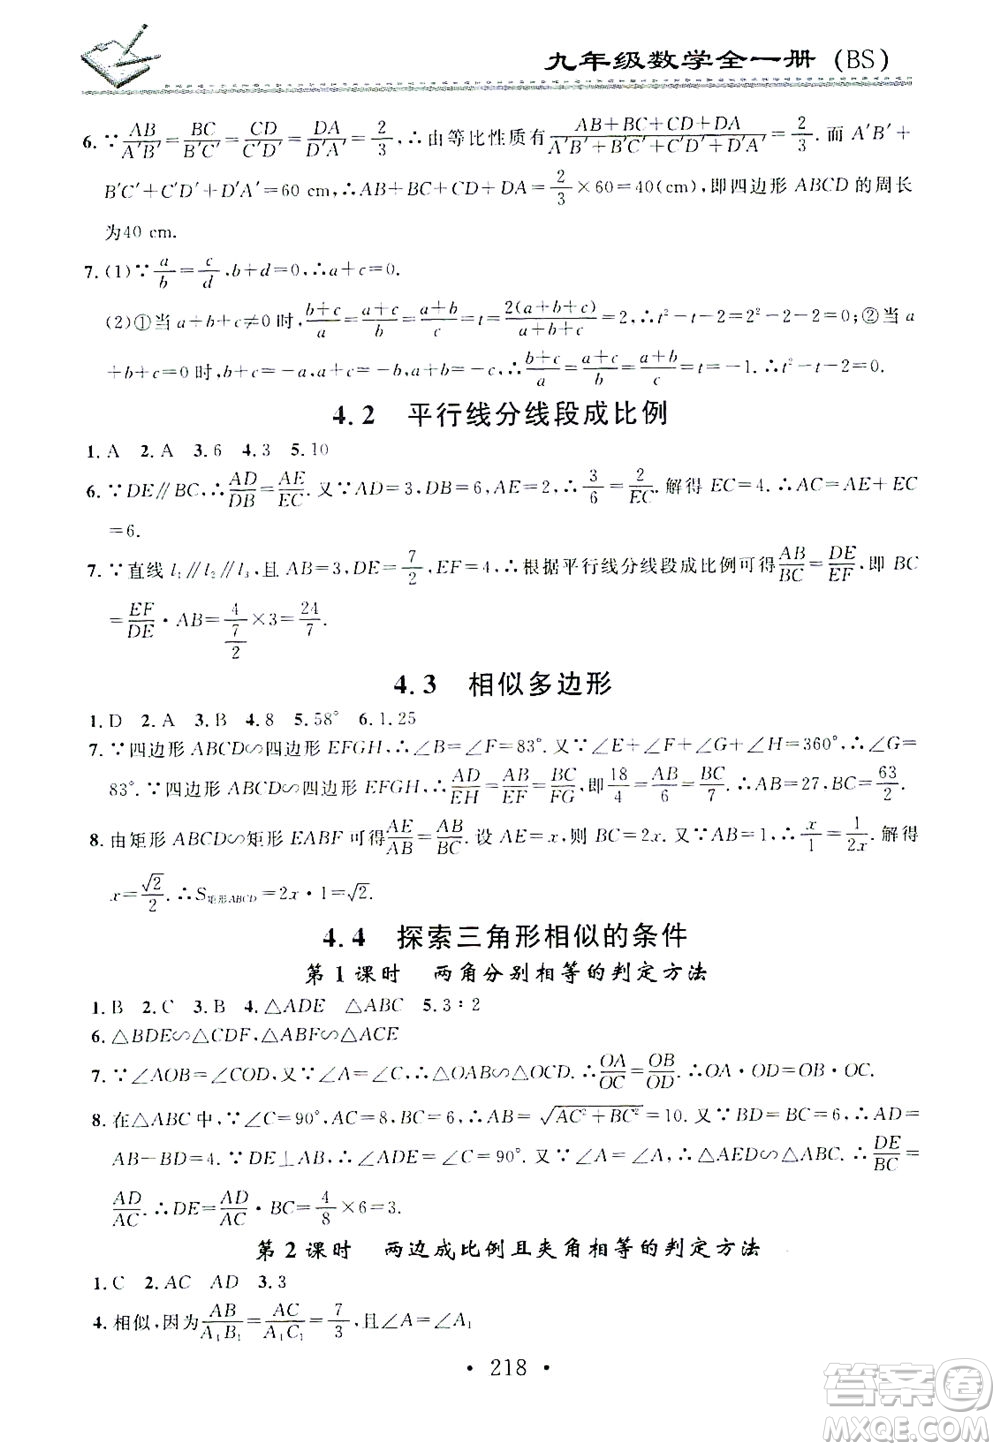 九年级数学全一册(BS)
6. ∵AB/A′B′=BC/B′C′=CD/C′D′=DA/D′A′=2/3.∴由等比性质有(AB+BC+CD+DA)/(A′B′+B′C′+C′D′+D′A′)=2/3.而 A′B′+
B′C′+C′D′+D′A′=60 cm,∴AB+BC+CD+DA=2/3×60=40(cm),即四边形 ABCD 的周长
为40 cm.
7. (1)∵a/b=c/d,b+d=0,∴a+c=0.
(2)①当 a+b+c≠0时,(b+c)/a=(a+c)/b=(a+b)/c=t=2(a+b+c)/(a+b+c)=2,∴t²-t-2=2²-2-2=0;②当 a
+b+c=0 时,b+c=-a,a+c=-b,a+b=-c,∴(b+c)/a=(a+c)/b=(a+b)/c=t=-1.∴t²-t-2=0.
4.2 平行线分线段成比例
1. A 2. A 3. 6 4. 3 5. 10
6. ∵DE∥BC,∴AD/DB=AE/EC.又∵AD=3,DB=6,AE=2,∴3/6=2/EC.解得 EC=4.∴AC=AE+EC
=6.
7. ∵直线 l₁∥l₂∥l₃,且 AB=3,DE=7/2,EF=4,∴根据平行线分线段成比例可得AB/BC=DE/EF,即 BC
=EF/DE·AB=4/(7/2)×3=24/7.
4.3 相似多边形
1. D 2. A 3. B 4. 8 5. 58° 6. 1.25
7. ∵四边形 ABCD∽四边形 EFGH,∴∠B=∠F=83°.又∵∠E+∠F+∠G+∠H=360°,∴∠G=
83°.∵四边形 ABCD∽四边形 EFGH,∴AD/EH=AB/EF=BC/FG,即18/4=AB/6=BC/7,∴AB=27,BC=63/2.
8. 由矩形 ABCD∽矩形 EABF 可得AE/AB=AB/BC.设 AE=x,则 BC=2x.又∵AB=1,∴x/1=1/2x.解得
x=√2/2.∴S矩形ABCD=2x·1=√2.
4.4 探索三角形相似的条件
第1课时 两角分别相等的判定方法
1. B 2. C 3. B 4. △ADE △ABC 5. 3∶2
6. △BDE∽△CDF,△ABF∽△ACE
7. ∵∠AOB=∠COD,又∵∠A=∠C,∴△OAB∽△OCD.∴OA/OC=OB/OD.∴OA·OD=OB·OC.
8. 在△ABC 中,∵∠C=90°,AC=8,BC=6,∴AB=√(AC²+BC²)=10.又∵BD=BC=6,∴AD=
AB-BD=4.∵DE⊥AB,∴∠ADE=∠C=90°.又∵∠A=∠A,∴△AED∽△ABC.∴DE/BC=
AD/AC.∴DE=AD/AC·BC=4/8×6=3.
第2课时 两边成比例且夹角相等的判定方法
1. C 2. AC AD 3. 3
4. 相似,因为AB/A₁B₁=AC/A₁C₁=7/3,且∠A=∠A₁
· 218 ·
答案圈
MXQE.COM